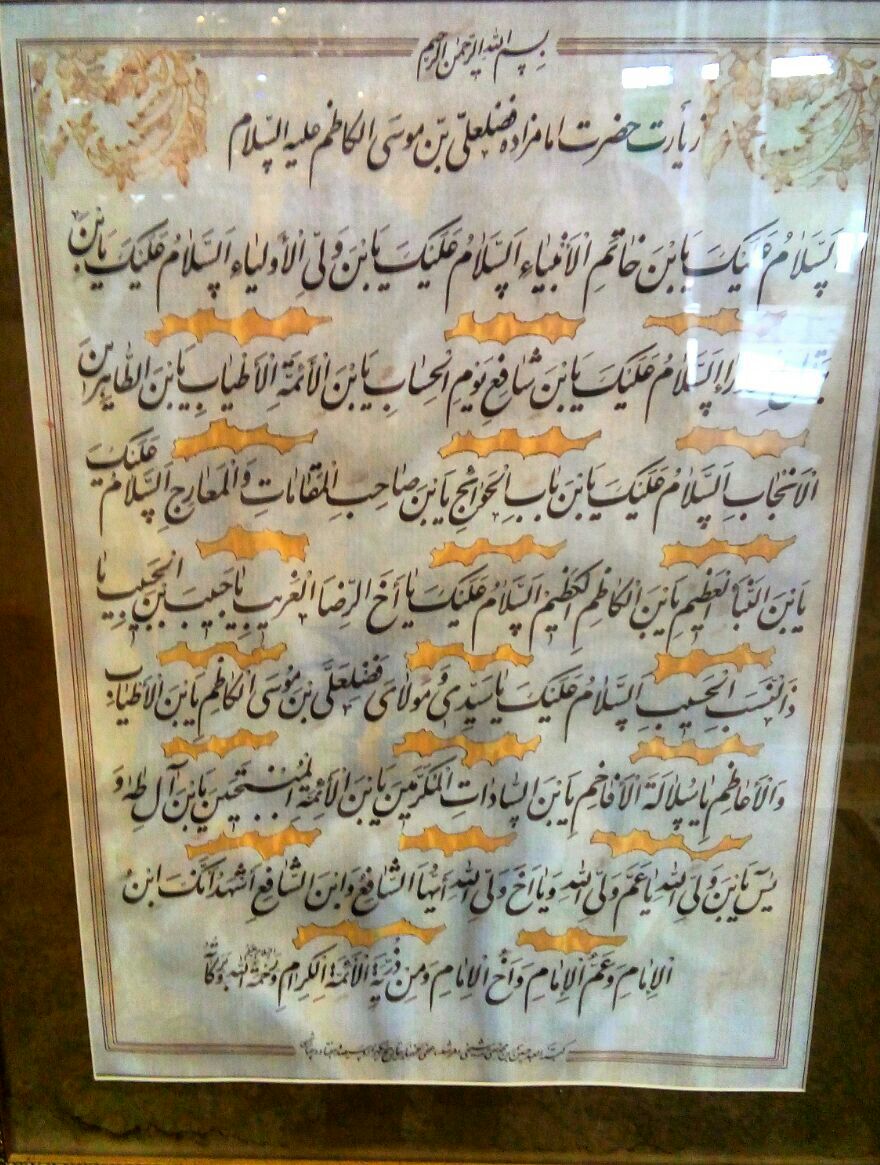 بِسْمِ اللهِ الرَّحْمٰنِ الرَّحِيمِ
زیارت حضرت امامزاده فضلعلیّ بن موسَی الکاظم علیه السّلام
اَلسَّلامُ عَلَيْكَ يَابْنَ خاتَمِ الْأَنْبِياءِ اَلسَّلامُ عَلَيْكَ يَابْنَ وَلِيِّ الْأَوْلِياءِ اَلسَّلامُ عَلَيْكَ يَابْنَ
اَلسَّلامُ عَلَيْكَ يَابْنَ شافِعِ يَوْمِ الْحِسابِ يَابْنَ الْأَئِمَّةِ الْأَطْيابِ يَابْنَ الطّاهِرينَ
الْأَنْجابِ اَلسَّلامُ عَلَيْكَ يَابْنَ بابِ الْحَوائِجِ يَابْنَ صاحِبِ الْمَقاماتِ وَالْمَعارِجِ اَلسَّلامُ عَلَيْكَ
يَابْنَ النَّبَأِ الْعَظيمِ يَابْنَ الْكاظِمِ الْكَظيمِ اَلسَّلامُ عَلَيْكَ يا أَخَ الرِّضَا الْغَريبِ يا حَبيبَ بْنَ الْحَبيبِ يا
ذَالنَّسَبِ الْحَسيبِ اَلسَّلامُ عَلَيْكَ يا سَيِّدي وَ مَوْلايَ فَضْلِعَلَّى بْنَ مُوسَى الْكاظِمِ يَابْنَ الْأَطْيابِ
وَالْأَعاظِمِ يا سُلالَةَ الْأَفاخِمِ يَابْنَ السّاداتِ الْمُكَرَّمينَ يَابْنَ الْأَئِمَّةِ الْمُنْتَجَبينَ يَابْنَ آلِ طٰهٰ وَ
يسَ يَابْنَ وَلِيِّ اللهِ يا عَمَّ وَلِيِّ اللهِ وَيا أَخَ وَلِيِّ اللهِ أَيُّهَا الشّافِعُ وَابْنَ الشّافِعِ أَشْهَدُ أَنَّكَ ابْنُ
الْإِمامِ وَعَمُّ الْإِمامِ وَأَخُ الْإِمامِ وَمِنْ ذُرِّيَّةِ الْأَئِمَّةِ الْكِرامِ وَرَحْمَةُ اللهِ وَبَرَكاتُهُ